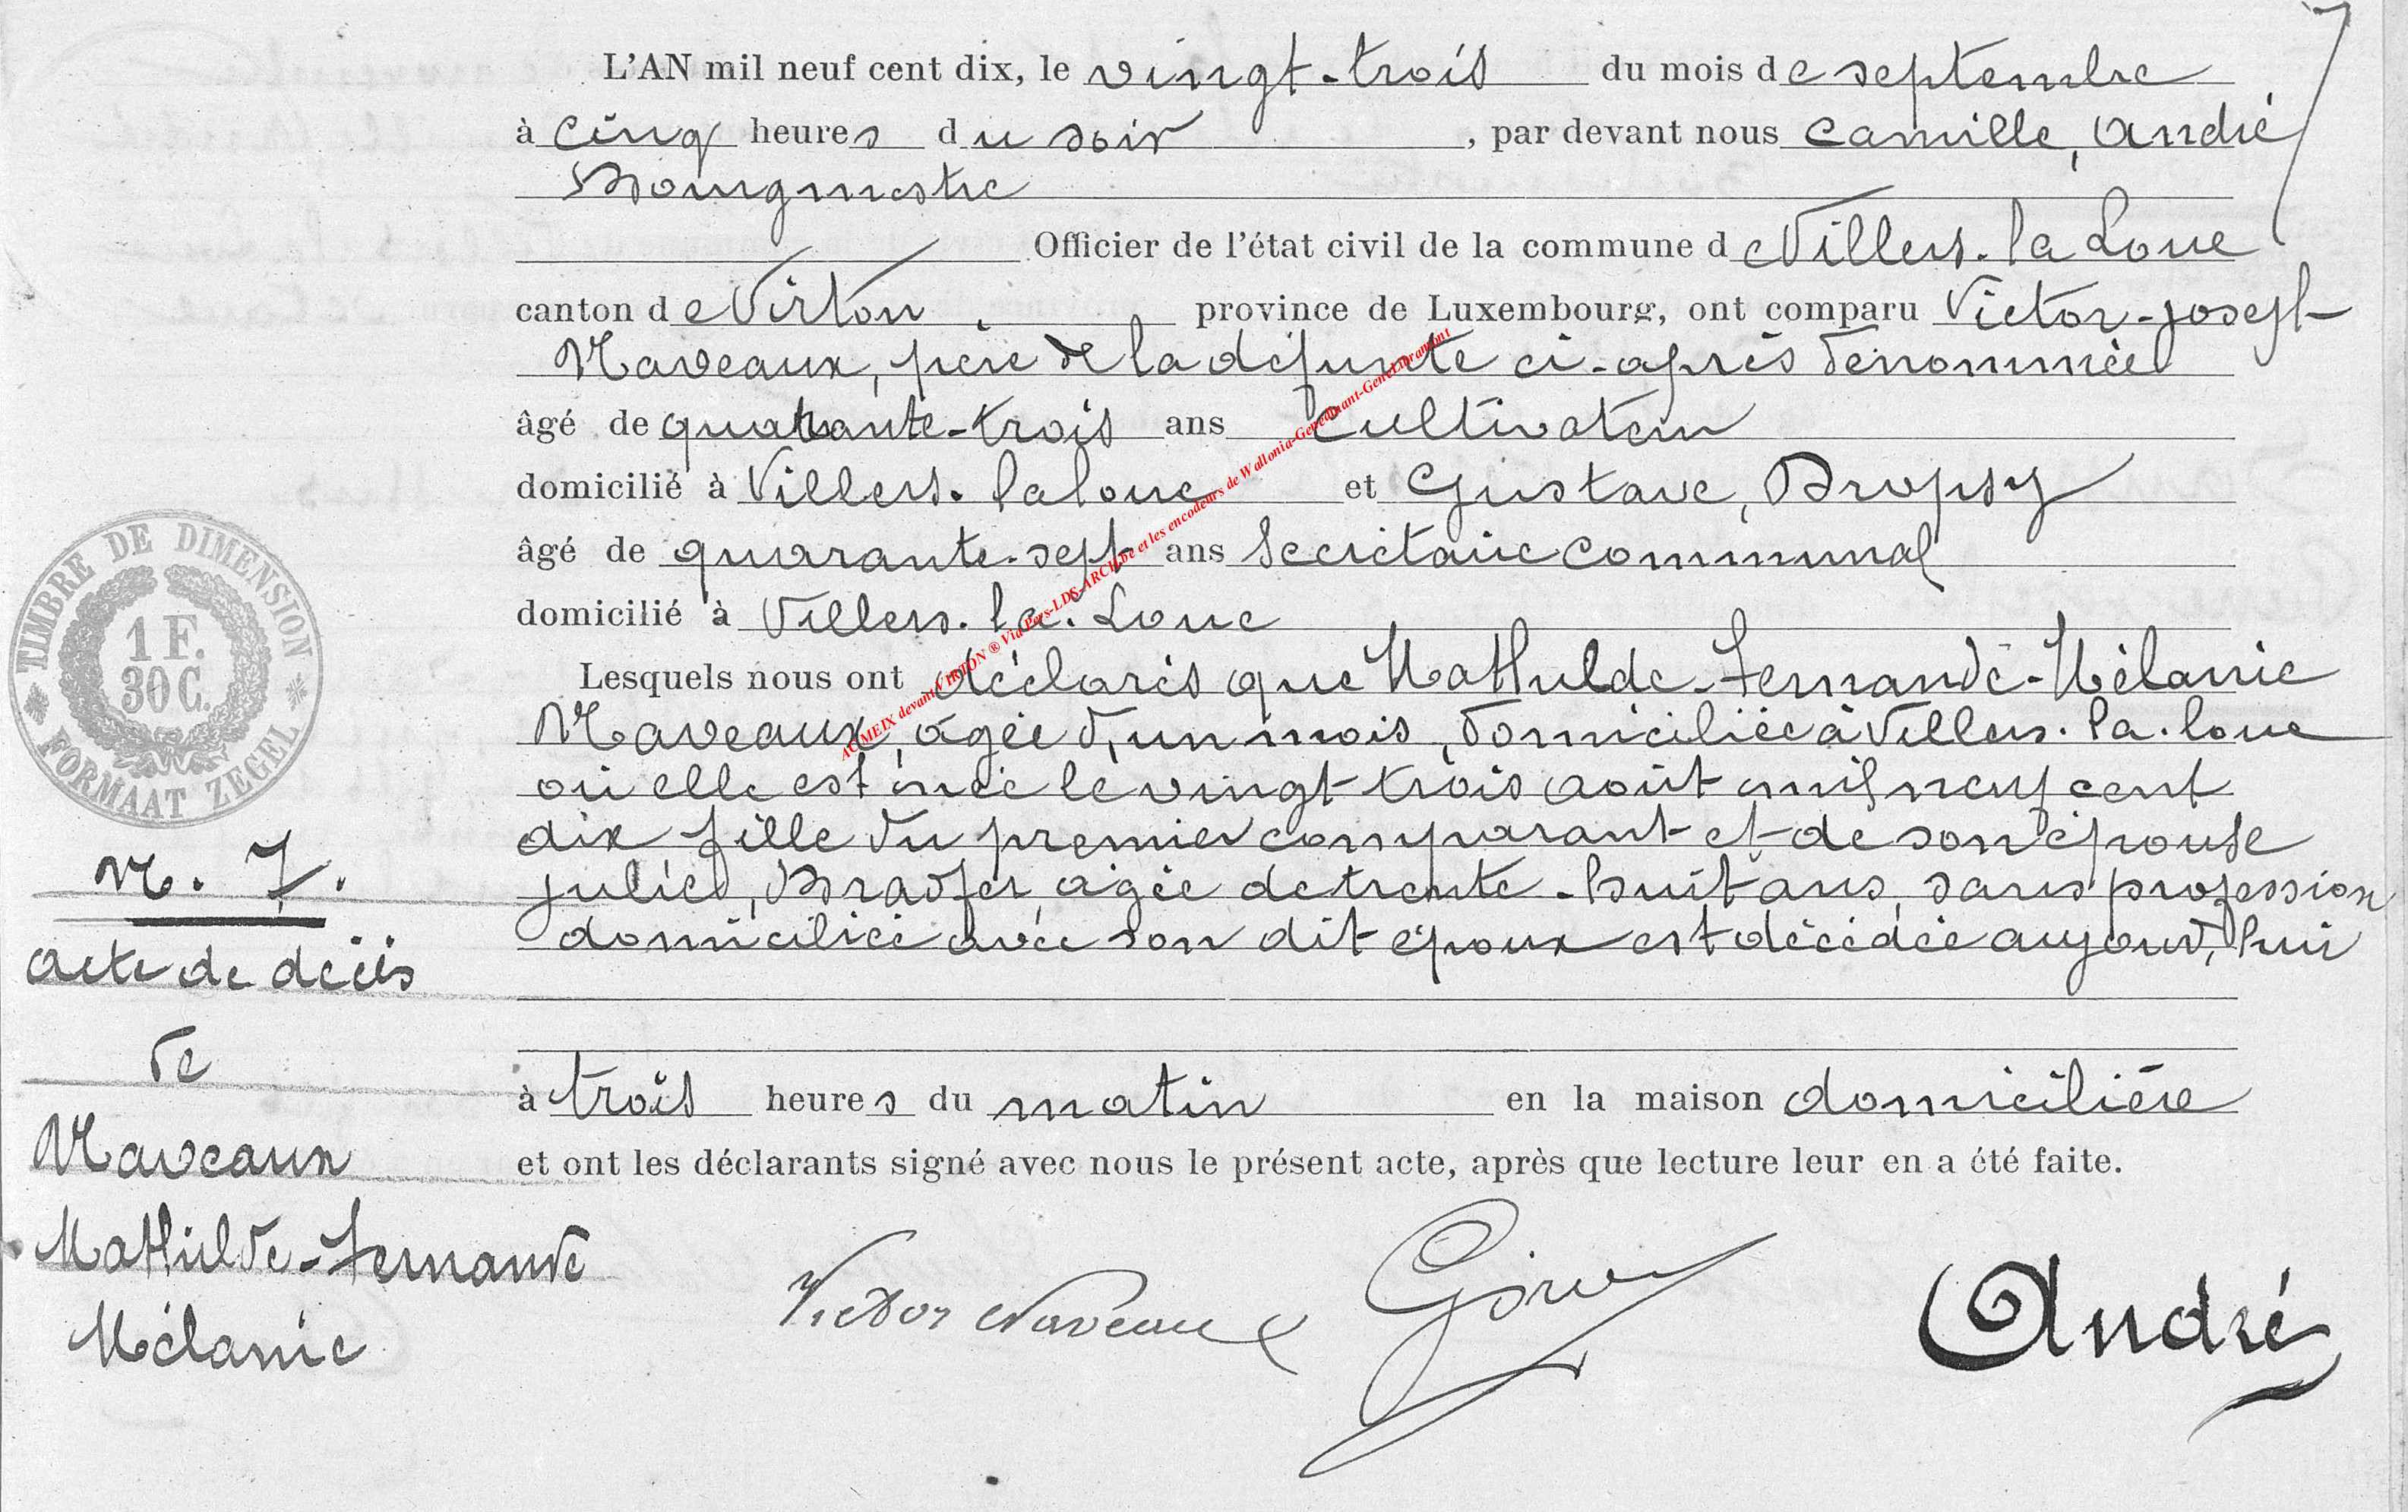 L'AN mil neuf cent dix, le vingt-trois du mois de septembre
à cinq heures du soir, par devant nous Camille, André
Bourgmestre
Officier de l'état civil de la commune de Villers-la-Loue
canton de Virton province de Luxembourg, ont comparu Victor-Joseph
Naveaux, père de la défunte ci-après dénommée
âgé de quarante-trois ans Cultivateur
domicilié à Villers-la loue et Gustave, Dropsy
âgé de quarante-sept ans Secrétaire communal
domicilié à Villers-la-Loue
Lesquels nous ont déclarés que Mathilde-Fernande-Mélanie
Naveaux, agée d'un mois, domiciliée à Villers-la-loue
où elle est née le vingt-trois août mil neuf cent
dix fille du premier comparant et de son épouse
julie, Bradfer, agée de trente-huit ans, sans profession
domiciliée avec son dit époux est décédée aujourd'hui
à trois heures du matin en la maison domicilière
et ont les déclarants signé avec nous le présent acte, après que lecture leur en a été faite.
Victor Naveaux André
TIMBRE DE DIMENSION
1 F.
30 C.
FORMAAT ZEGEL
N. 7.
acte de décès
de
Naveaux
Mathilde-Fernande
Mélanie
AC MEIX devant VIRTON ® Via Pers-LDS-ARCH.be et les encodeurs de Wallonia-Genedinant-GeneLibramont